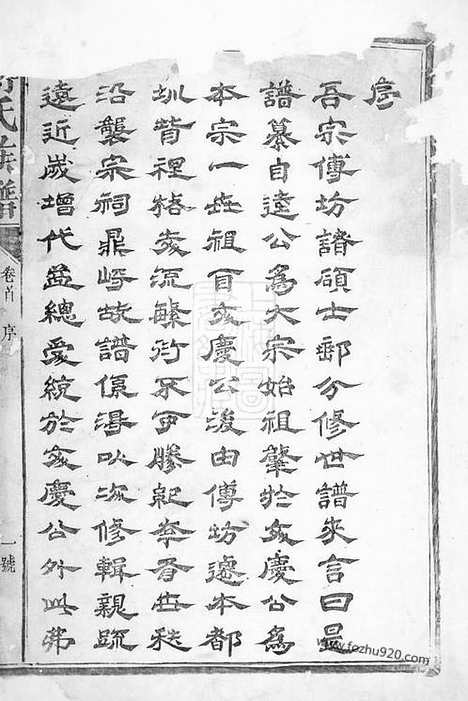 序
吾宗傳坊諸碩士郵分修世譜來言曰是
譜纂自遠公為大宗始祖肇於友慶公為
本宗一世祖自友慶公後由傳坊遷本都
圳背裡支流繁衍不可勝紀世秩
沿襲宗祠鼎峙故譜係得以次修輯親疏
遠近歲增代益總受統於友慶公外此弗
氏族譜
卷首 序
一號
www.fozhu920.com